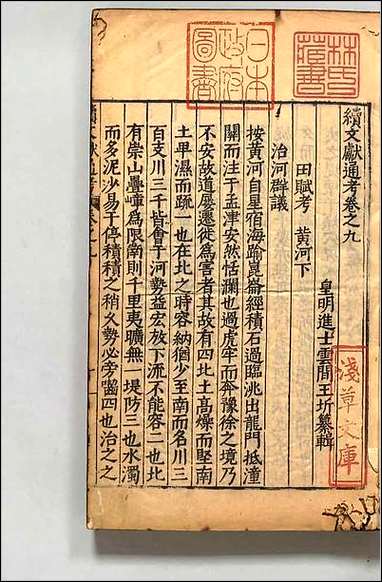 續文獻通考卷之九
皇明進士雲間王圻纂輯
田賦考 黃河下
治河群議
按黃河自星宿海踰崑崙經積石過臨洮出龍門抵潼
關而注于孟津安然恬瀾也過虎牢而奔豫徐之境乃
不安故道屢遷徙為害者其故有四北土高燥而堅南
土卑濕而疏一也在北之時容納猶少至南而名川三
百支川三千皆會于河勢益宏放下流不能容二也北
有崇山疊嶂為限南則千里夷曠無一堤防三也水濁
而多泥沙易于停積積之稍久勢必旁嚙四也治之之
林氏藏書
日本政府圖書
淺草文庫